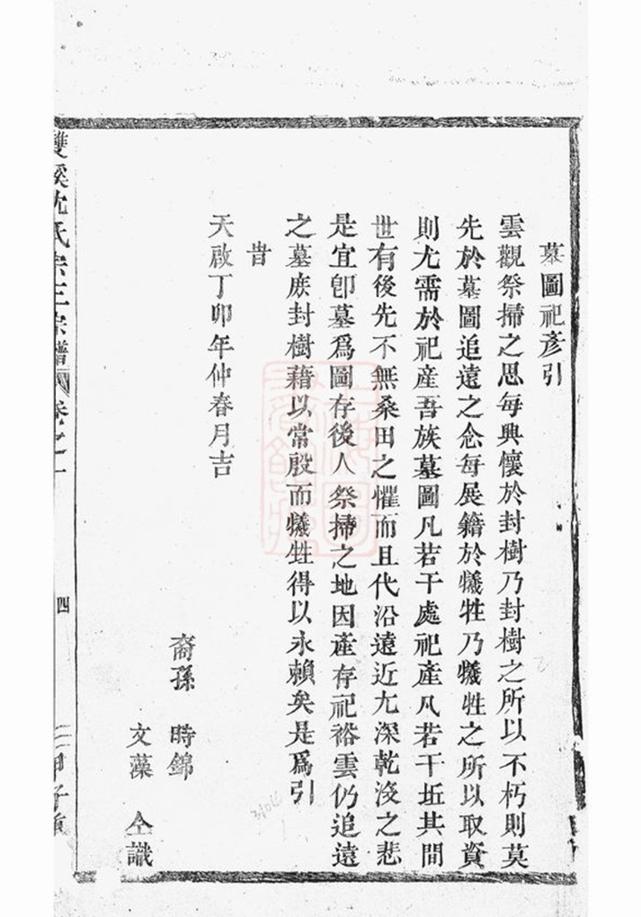 墓圖祀彥引
雲觀祭掃之思每興懷於封樹乃封樹之所以不朽則莫
先於墓圖追遠之念每展籍於犧牲乃犧牲之所以取資
則尤需於祀產吾族墓圖凡若干處祀產凡若干坵其間
世有後先不無桑田之懼而且代沿遠近尢深乾沒之悲
是宜卽墓爲圖存後人祭掃之地因產存祀裕雲仍追遠
之墓庻封樹藉以常殷而犧牲得以永賴矣是爲引
旹
天啟丁卯年仲春月吉
裔孫 時錦
文藻 仝識
雙溪沈氏宗三宗譜 卷之一 四